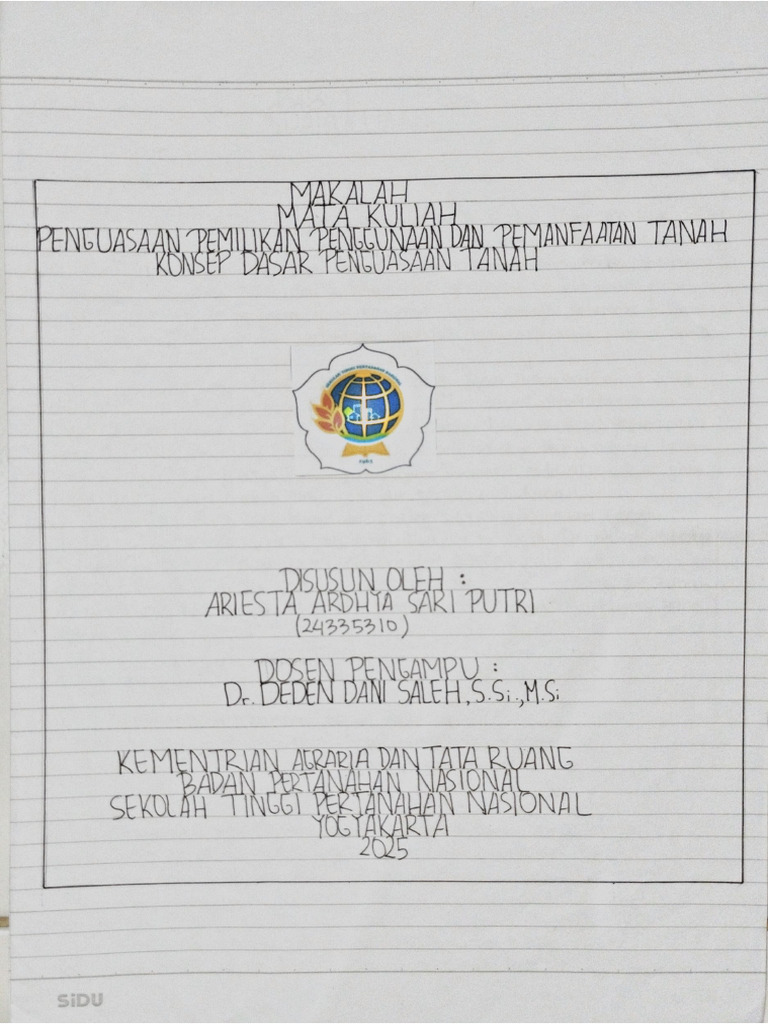 MAKALAH
MATA KULIAH
PENGUASAAN PEMILIKAN PENGGUNAAN DAN PEMANFAATAN TANAH
KONSEP DASAR PENGUASAAN TANAH
SEKOLAH TINGGI PERTANAHAN NASIONAL
DISUSUN OLEH :
ARIESTA ARDHYA SARI PUTRI
(24335310)
DOSEN PENGAMPU :
Dr. DEDEN DANI SALEH, S.Si., M.Si
KEMENTRIAN AGRARIA DAN TATA RUANG
BADAN PERTANAHAN NASIONAL
SEKOLAH TINGGI PERTANAHAN NASIONAL
YOGYAKARTA
2025
SiDU